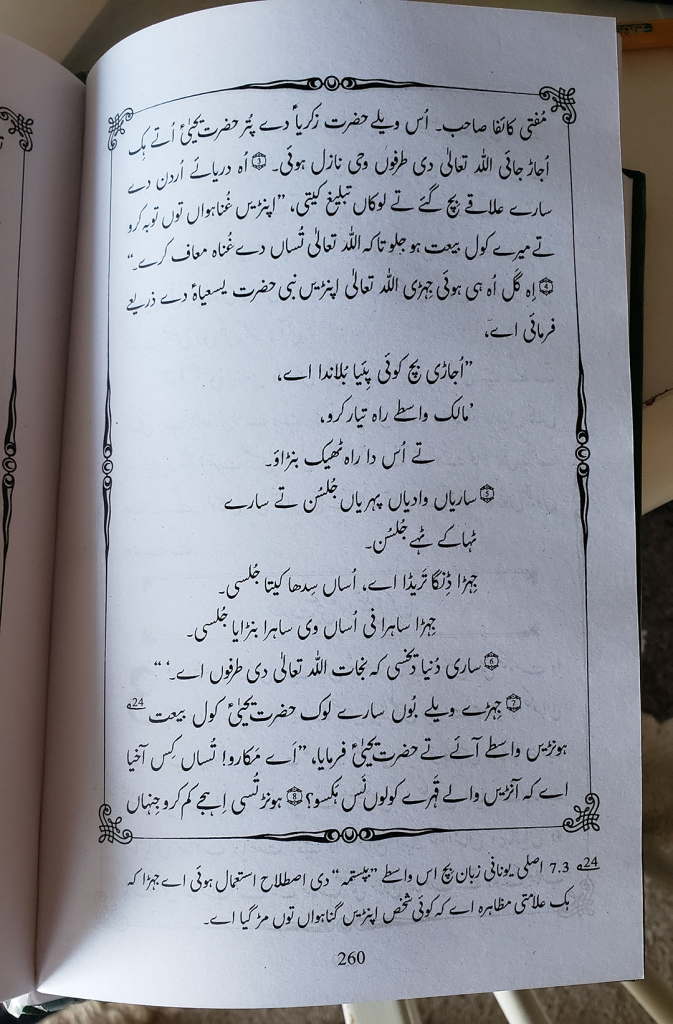 مُفتی کائفا صاحب۔ اُس ویلے حضرت زکریاؑ دے پُتر حضرت یحییٰؑ اُتے ہِک
اُجاڑ جائی اللہ تعالیٰ دی طرفوں وحی نازل ہوئی۔ ③ اُہ دریائے اُردن دے
سارے علاقے بچ گئے تے لوکاں تبلیغ کیتی، ”اپنڑیں غُناہواں توں توبہ کرو
تے میرے کول بیعت ہو جلو تاکہ اللہ تعالیٰ تُساں دے غُناہ معاف کرے۔“
④ اِہ گَل اُہ ہی ہوئی جِہڑی اللہ تعالیٰ اپنڑیں نبی حضرت یسعیاہؑ دے ذریعے
فرمائی اے،
”اُجاڑی بچ کوئی پئیا بُلاندا اے،
’مالک واسطے راہ تیار کرو،
تے اُس دا راہ ٹھیک بنڑاؤ۔
⑤ ساریاں وادیاں پہریاں جُلسُن تے سارے
ٹہاکے ٹہے جُلسُن۔
جِہڑا ڈِنگا تَریڈا اے، اُساں سِدھا کیتا جُلسی۔
جِہڑا ساہرا فی اُساں وی ساہرا بنڑایا جُلسی۔
⑥ ساری دُنیا دیخسی کہ نجات اللہ تعالیٰ دی طرفوں اے۔‘ “
⑦ جِہڑے ویلے بوُں سارے لوک حضرت یحییٰؑ کول بیعت 24؎
ہونڑیں واسطے آئے تے حضرت یحییٰؑ فرمایا، ”اَے مَکارو! تُساں کِس آخیا
اے کہ آنڑیں والے قہرے کولوں نَس ہکسو؟ ⑧ ہونڑ تُسی اِہجے کم کرو جِنہاں
24؎ 7.3 اصلی یونانی زبان بچ اس واسطے ”بپتسمہ“ دی اصطلاح استعمال ہوئی اے جہڑا کہ
ہک علامتی مظاہرہ اے کہ کوئی شخص اپنڑیں گناہواں توں مڑ گیا اے۔
260